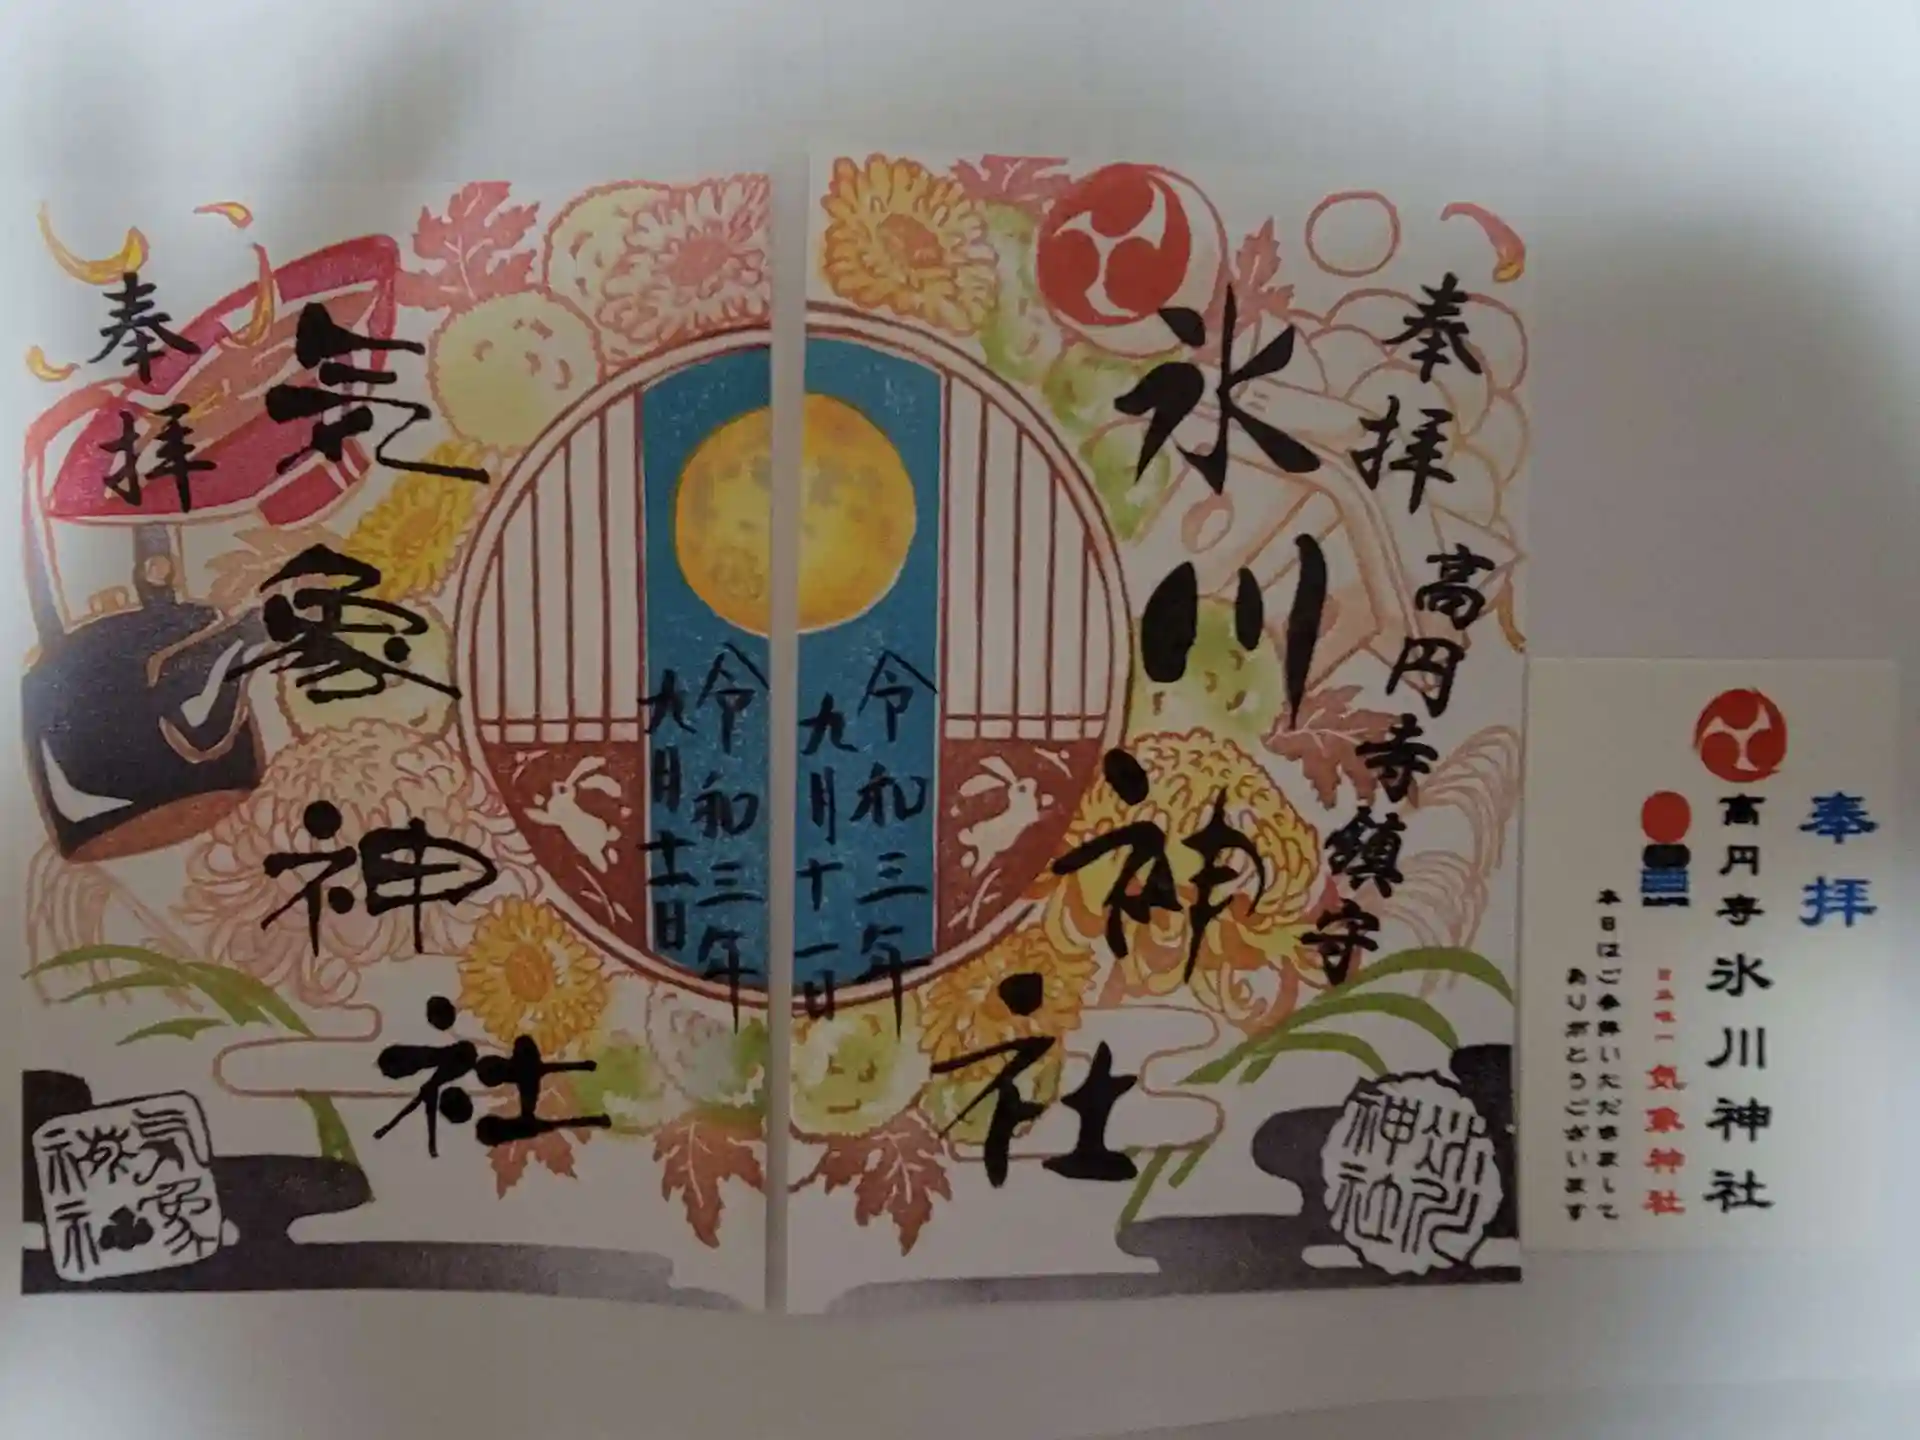 奉拝
高円寺鎮守
氷川神社
令和三年
九月十一日
氷川神社
奉拝
氣象神社
令和三年
九月十一日
氣象神社
奉拝
高円寺氷川神社
日本唯一 気象神社
本日はご参拝いただきまして
ありがとうございます